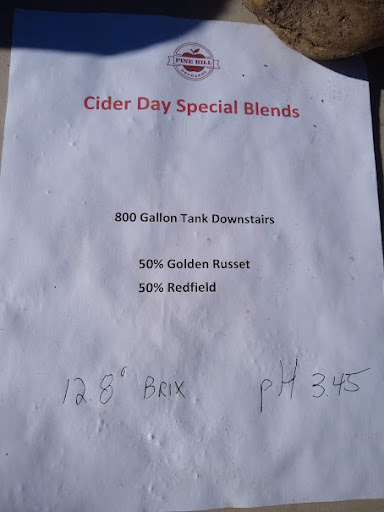 PINE HILL
ORCHARDS
Cider Day Special Blends
800 Gallon Tank Downstairs
50% Golden Russet
50% Redfield
12.8° BRIX pH 3.45